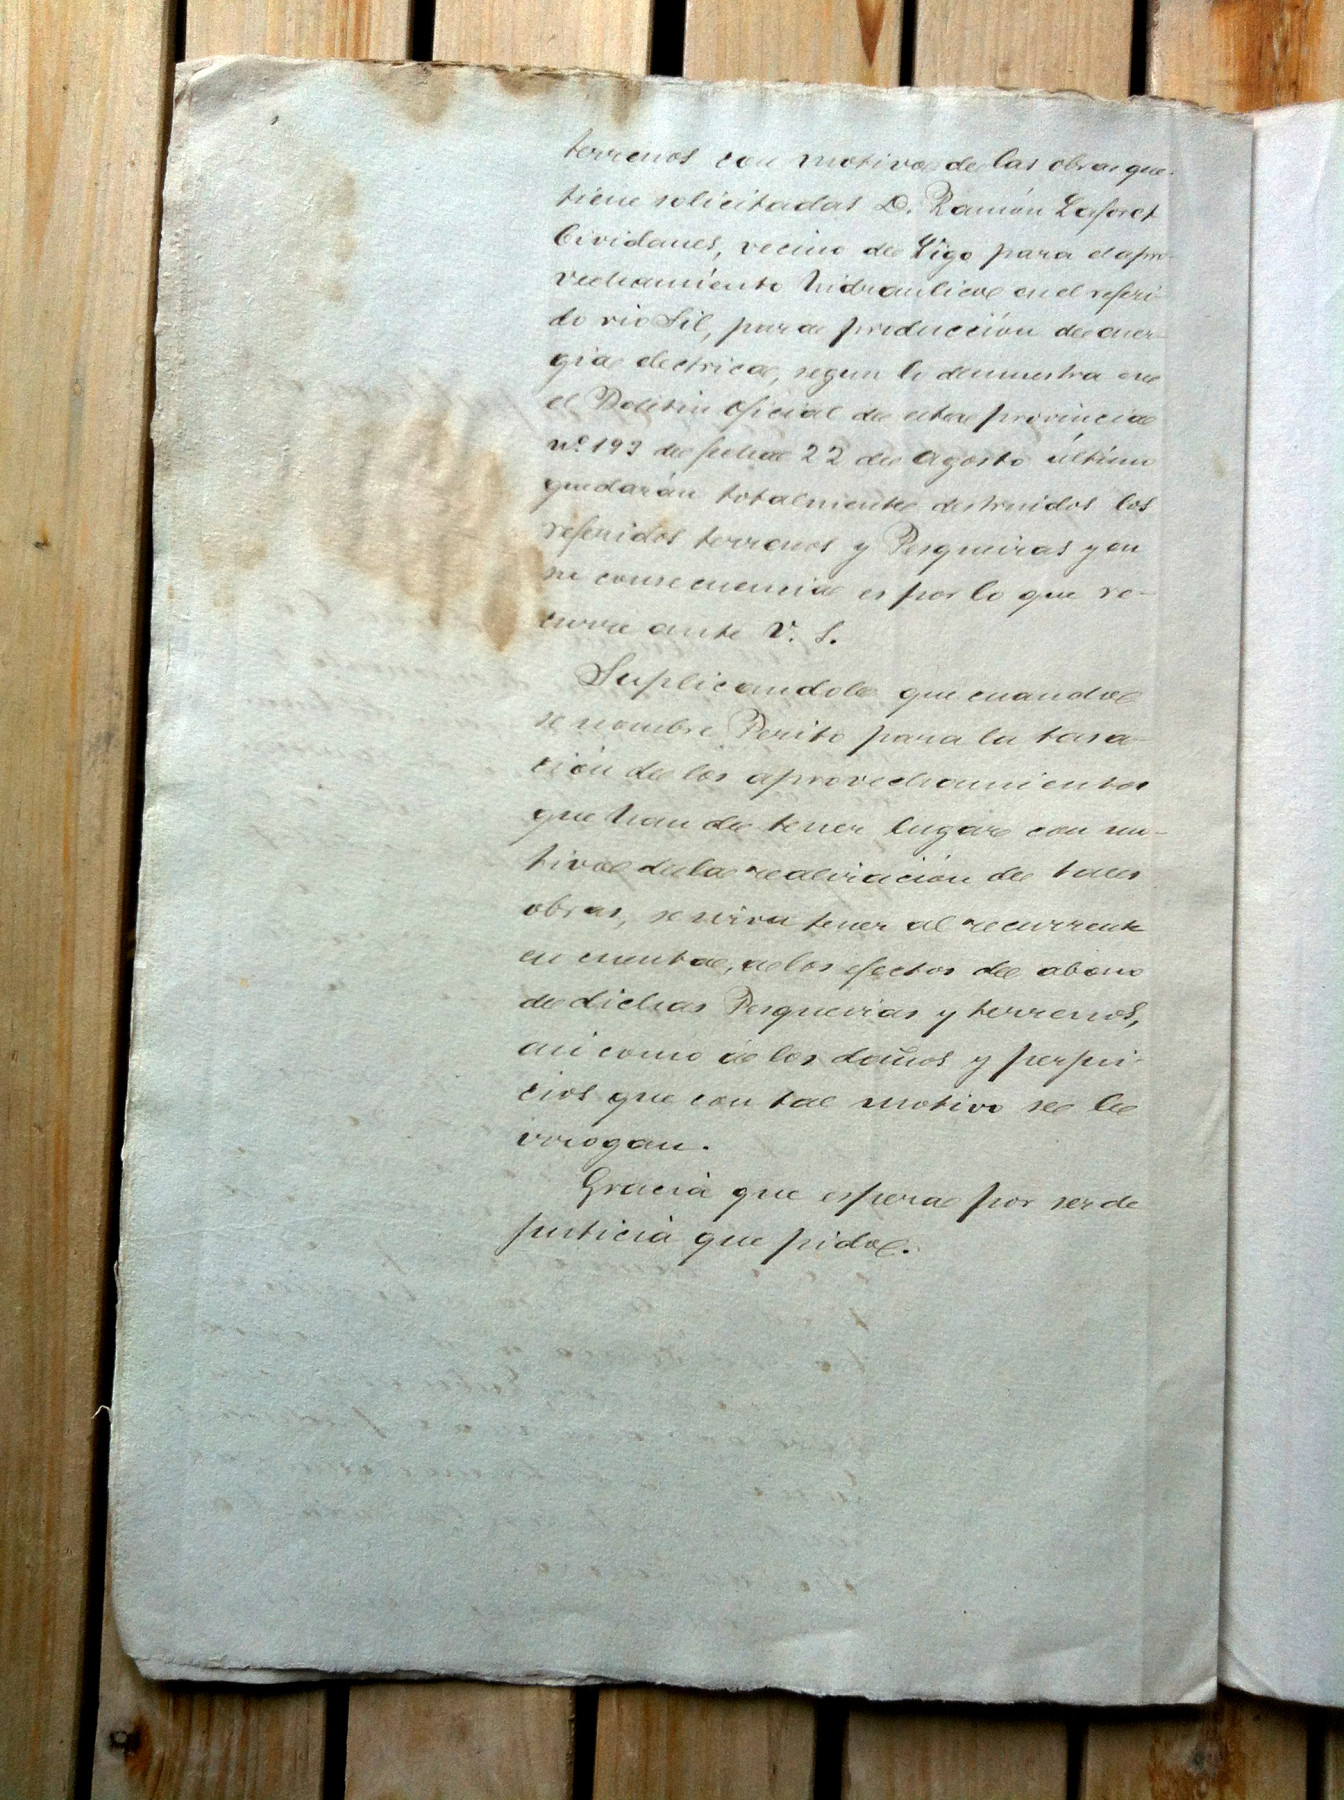 terrenos con motivo de las obras que
tiene solicitadas D. Ramón Laforet
Cividanes, vecino de Vigo para el apro-
vechamiento hidraulico en el referi-
do rio Sil, para producción de ener-
gia electrica, segun lo demuestra en
el Boletin Oficial de esta provincia
nº 193 de fecha 22 de Agosto último
quedarán totalmente destruidos los
referidos terrenos y Pesqueiras y en
su consecuencia es por lo que re-
curre ante V. S.
Suplicandole que cuando
se nombre Perito para la tasa-
ción de los aprovechamientos
que han de tener lugar con mo-
tivo de la realización de tales
obras, se sirva tener al recurrente
en cuenta, a los efectos de abono
de dichas Pesqueiras y terrenos,
asi como de los daños y perjui-
cios que con tal motivo se le
irrogan.
Gracia que espera por ser de
justicia que pido.